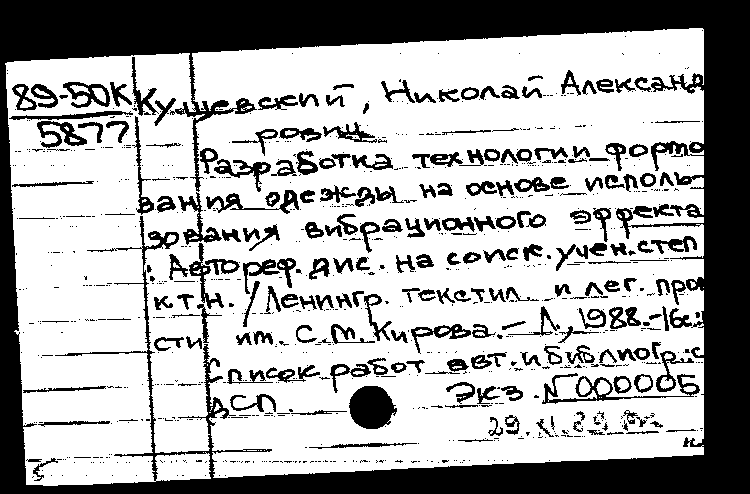 89-50К Кущевский, Николай Александ
5877
рович
Разработка технологии формо
вания одежды на основе исполь-
зования вибрационного эффекта
: Автореф. дис. на соиск. учен. степ
к.т.н. / Ленингр. текстил. и лег. пром
сти им. С.М. Кирова. - Л., 1988. - 16с.:
Список работ авт. и библиогр.: с
ДСП. Экз. № 000005
29.XI.89